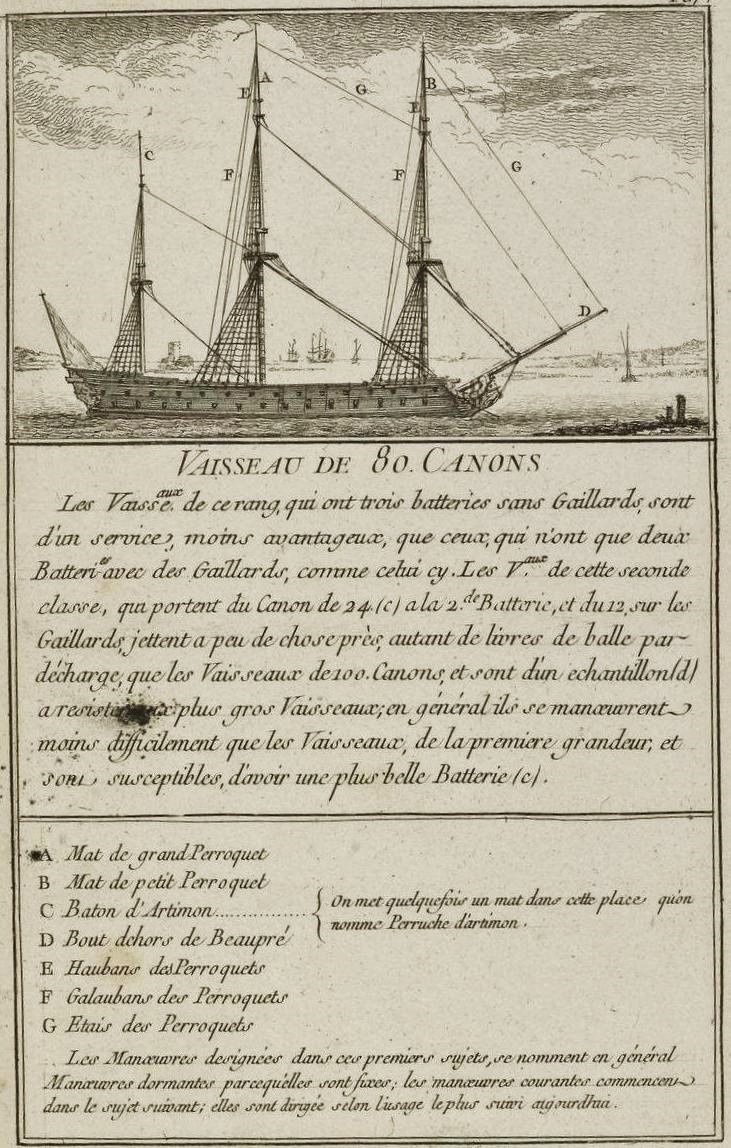 A
E
G
B
E
C
F
F
G
D
VAISSEAU DE 80. CANONS
Les Vaisse.aux de ce rang, qui ont trois batteries sans Gaillards, sont
d'un service, moins avantageux, que ceux, qui n'ont que deux
Batteri.es avec des Gaillards, comme celui cy. Les V.aux de cette seconde
classe, qui portent du Canon de 24. (c) a la 2.de Batterie, et du 12, sur les
Gaillards, jettent a peu de chose près, autant de livres de balle par-
décharge, que les Vaisseaux de 100. Canons, et sont d'un echantillon (d)
a plus gros Vaisseaux; en général ils se manœuvrent
moins difficilement que les Vaisseaux, de la premiere grandeur, et
sont susceptibles, d'avoir une plus belle Batterie (c).
A Mat de grand Perroquet
B Mat de petit Perroquet
C Baton d'Artimon............... { On met quelquefois un mat dans cette place qu'on
nomme Perruche d'artimon.
D Bout dehors de Beaupré
E Haubans des Perroquets
F Galaubans des Perroquets
G Etais des Perroquets
Les Manœuvres designées dans ces premiers sujets, se nomment en général
Manœuvres dormantes parcequ'elles sont fixes; les manœuvres courantes commencent
dans le sujet suivant; elles sont dirigée selon l'usage le plus suivi aujourdhui.